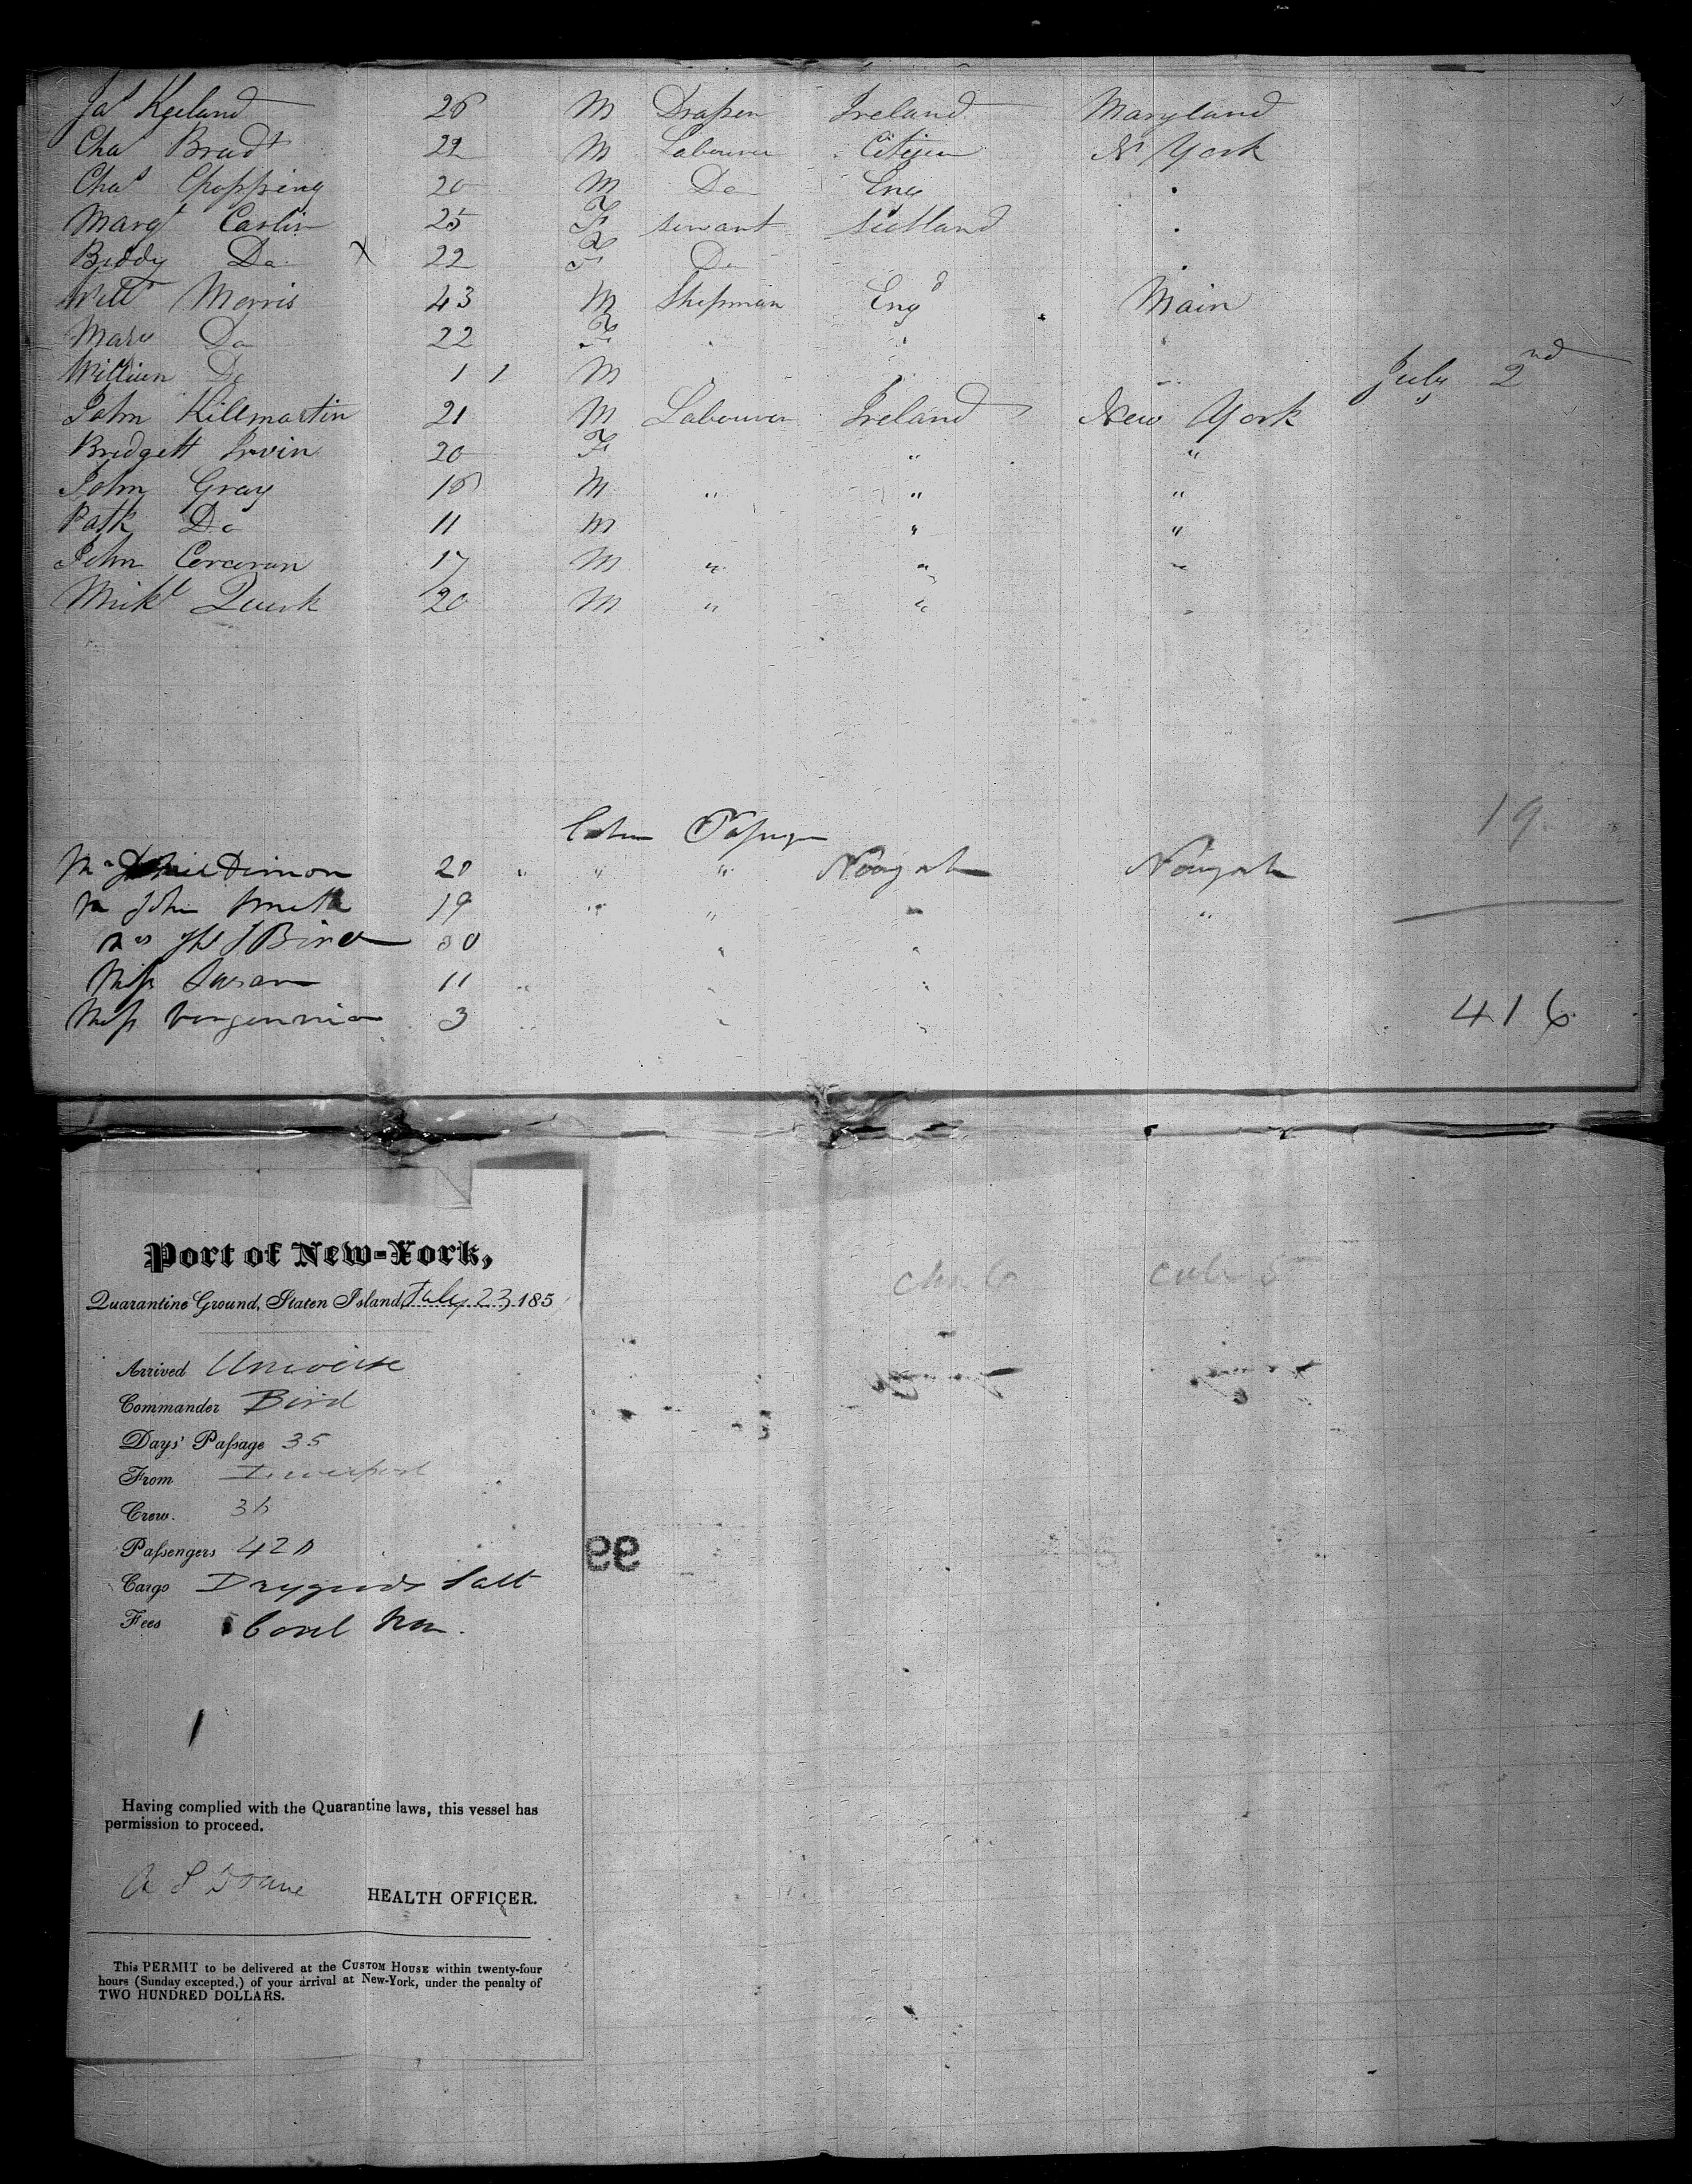 Jas Keeland 26 M Draper Ireland Maryland
Chas Bradt 22 M Labourer Citizen N York
Chas Chopping 20 M Do Eng .
Margt Carlin 25 F servant Scotland .
Biddy Do X 22 F Do .
Willm Morris 43 M Shipman Engd Main
Mary Do 22 F . . .
William Do 11 M
July 2nd
John Killmartin 21 M Labourer Ireland New York
Bridgett Irvin 20 F " "
John Gray 16 M " " "
Patk Do 11 M " "
John Corcoran 17 M " " "
Mikl Quirk 20 M " "
19
Cabin
Dimon 20 " " "
John Smith 19 " "
Bird 30
Miss Susan 11
Miss 3
416
Port of New-York,
Quarantine Ground, Staten Island, July 23, 185
Arrived Universe
Commander Bird
Days' Passage 35
From Liverpool
Crew.
Passengers
Cargo Drygoods Salt
Fees
Having complied with the Quarantine laws, this vessel has
permission to proceed.
A S Doane HEALTH OFFICER.
This PERMIT to be delivered at the CUSTOM HOUSE within twenty-four
hours (Sunday excepted,) of your arrival at New-York, under the penalty of
TWO HUNDRED DOLLARS.